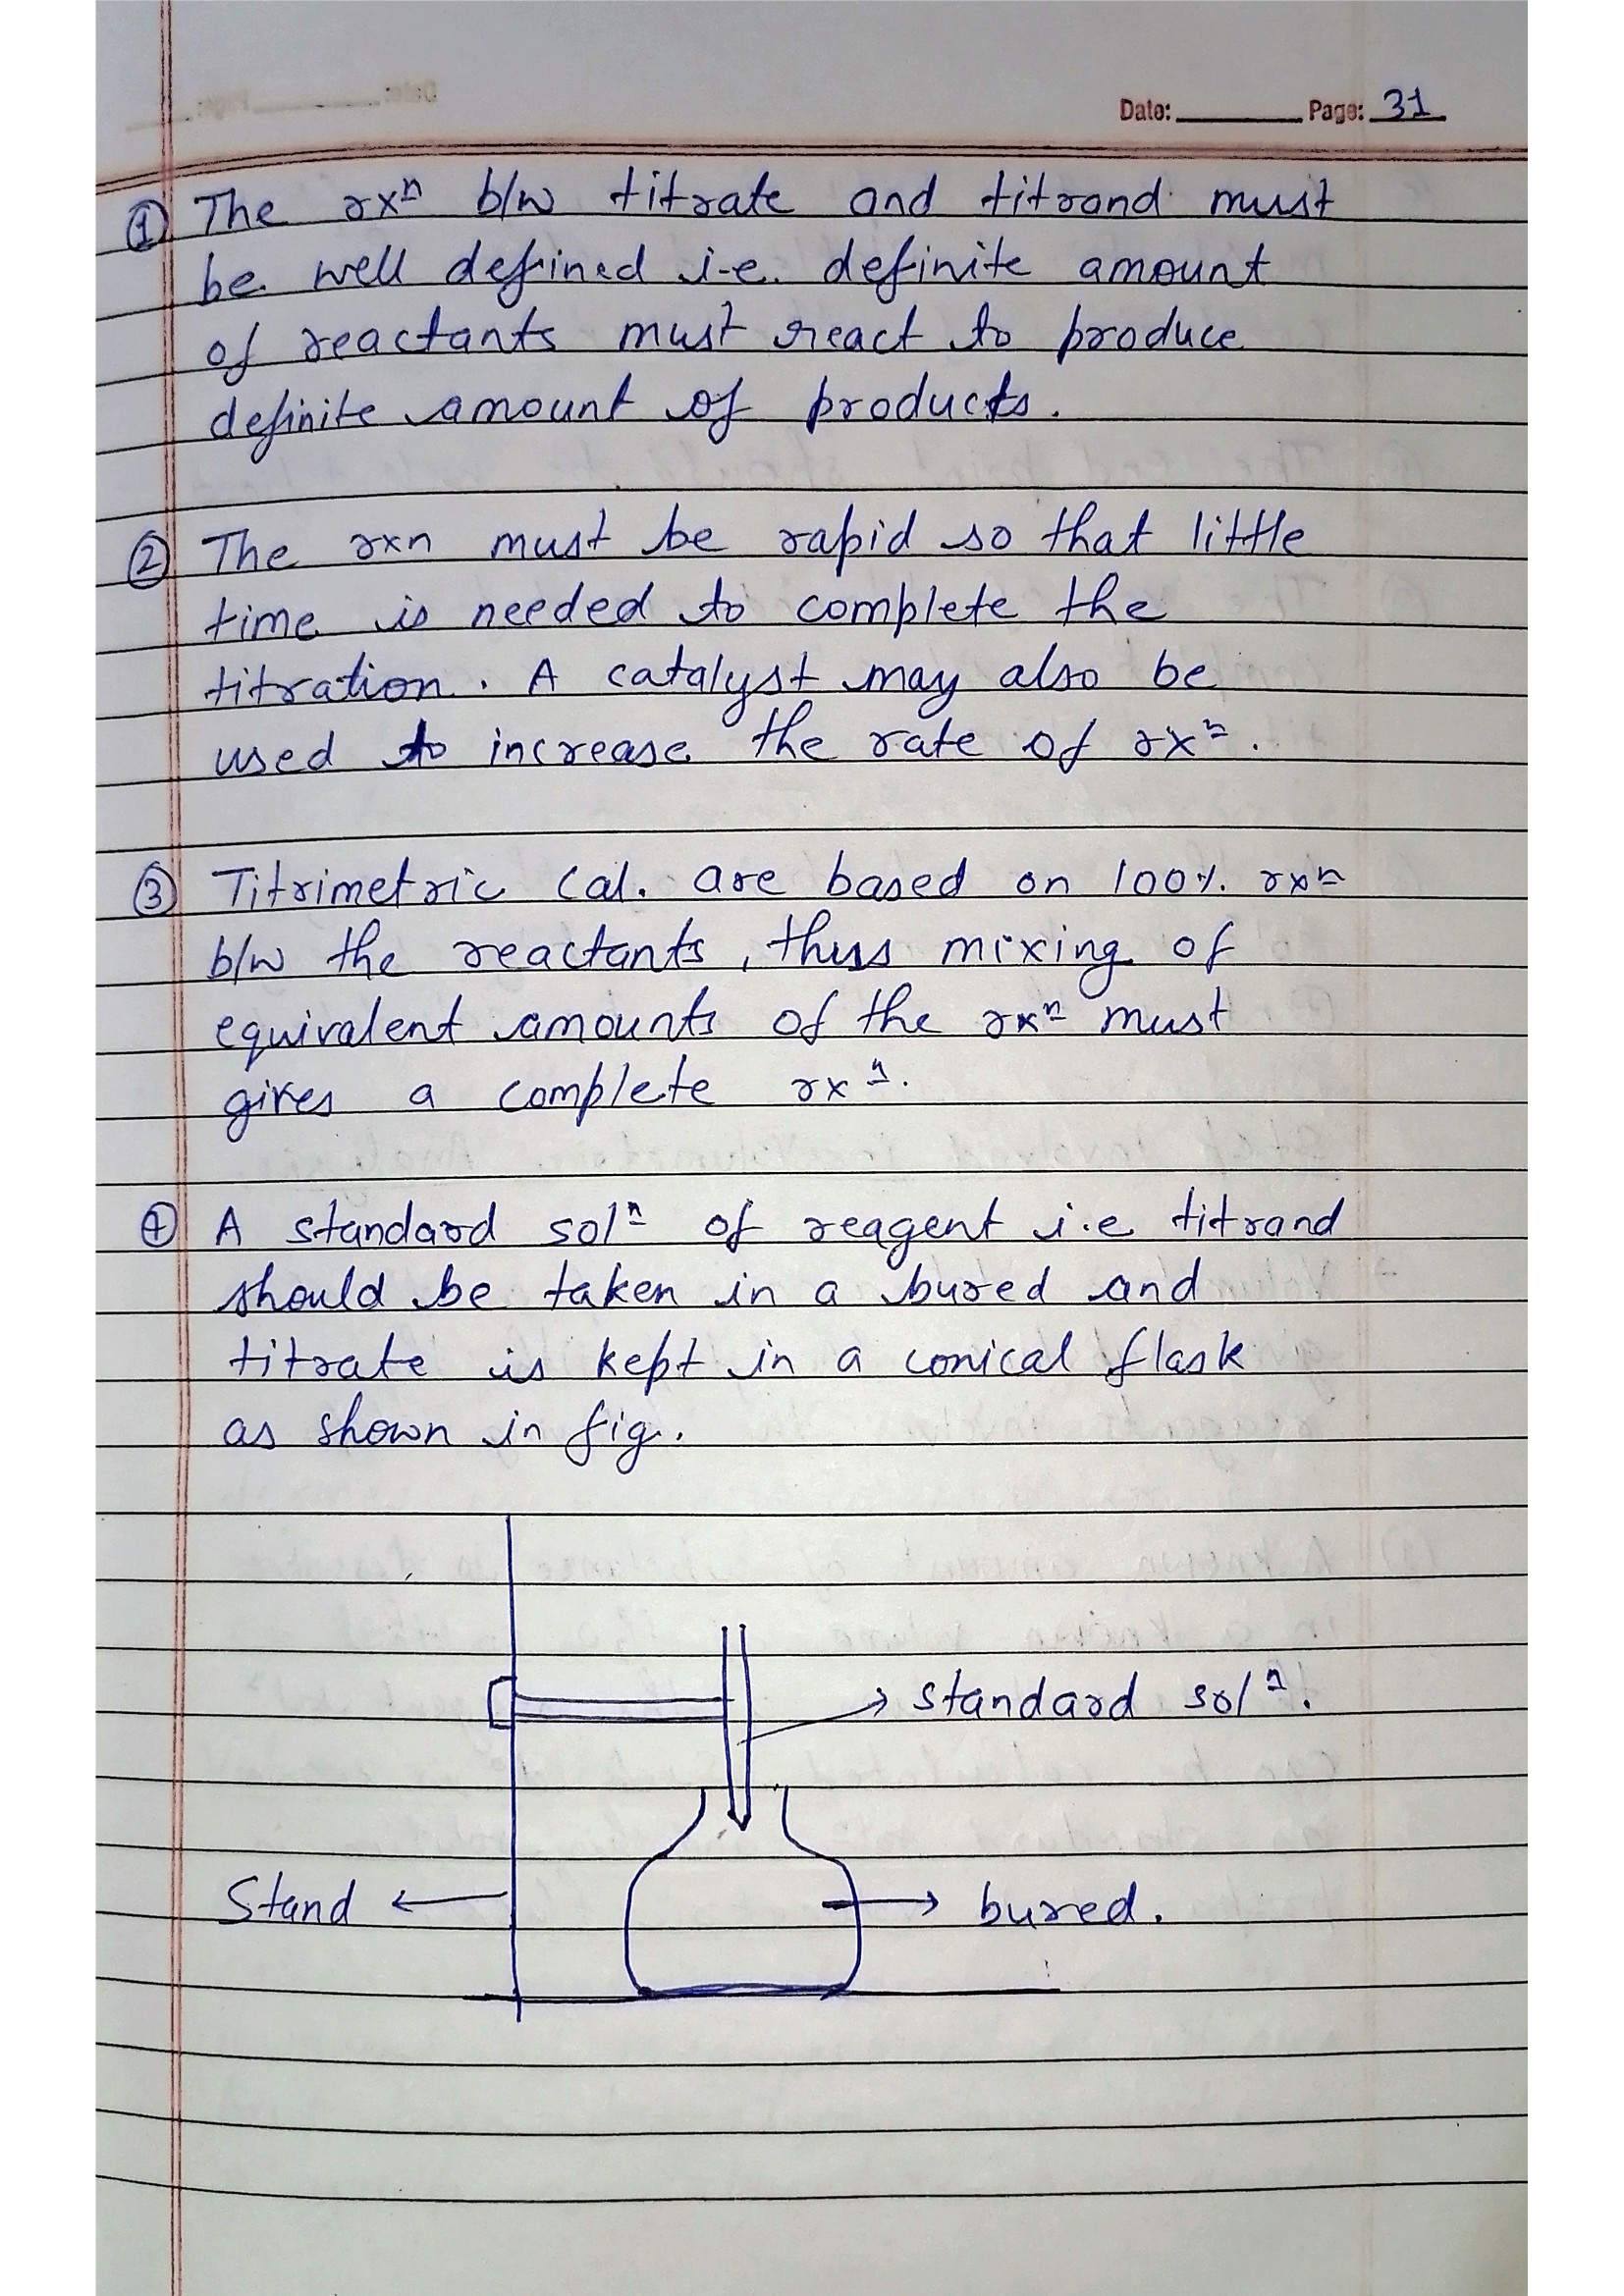 Date: Page: 31
① The rxⁿ b/w titrate and titrand must
be well defined i.e. definite amount
of reactants must react to produce
definite amount of products.
② The rxn must be rapid so that little
time is needed to complete the
titration. A catalyst may also be
used to increase the rate of rxⁿ.
③ Titrimetric Cal. are based on 100% rxⁿ
b/w the reactants, thus mixing of
equivalent amounts of the rxⁿ must
gives a complete rxⁿ.
④ A standard solⁿ of reagent i.e titrand
should be taken in a bured and
titrate is kept in a conical flask
as shown in fig.
→ standard solⁿ.
Stand ←
→ bured.